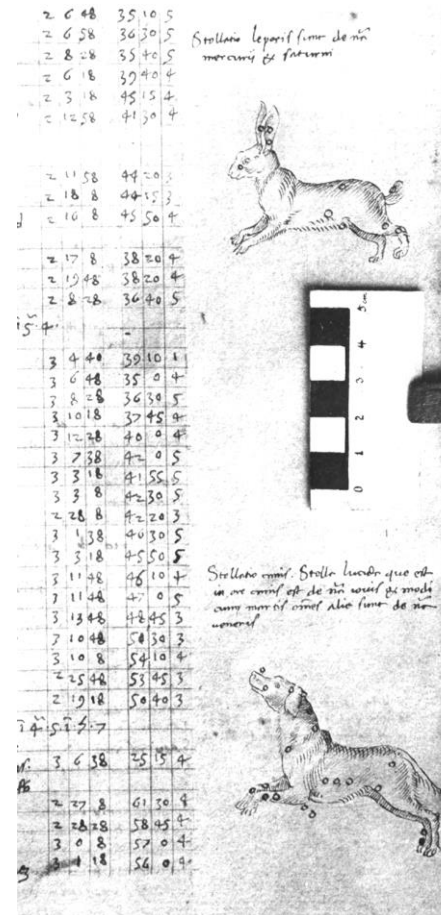 2 6 48 35 10 5
2 6 58 36 30 5
2 8 28 35 40 5
2 6 18 39 40 4
2 3 18 45 15 4
2 12 58 41 30 4
2 11 58 44 20 3
2 18 8 44 15 3
2 16 8 45 50 4
2 17 8 38 20 4
2 19 48 38 20 4
2 8 28 36 40 5
3 4 40 39 10 1
3 6 48 35 0 4
3 8 28 36 30 5
3 10 18 37 45 4
3 12 28 40 0 4
3 7 38 42 0 5
3 3 18 41 55 5
3 3 8 42 30 5
2 28 8 42 20 3
3 1 38 46 30 5
3 3 18 45 50 5
3 11 48 46 10 4
3 11 48 47 0 5
3 13 48 48 45 3
3 10 48 50 30 3
3 10 8 54 10 4
2 25 48 53 45 3
2 19 18 50 40 3
3 6 38 25 15 4
2 27 8 61 30 4
2 28 28 58 45 4
3 0 8 57 0 4
3 1 18 56 0 4
Stellatio leporis sunt de nã
mercurij et saturni
0 1 2 3 4 5 cm
Stellatio canis. Stella lucida que est
in ore canis est de nã iouis et modi
cum martis omnes alie sunt de nã
veneris